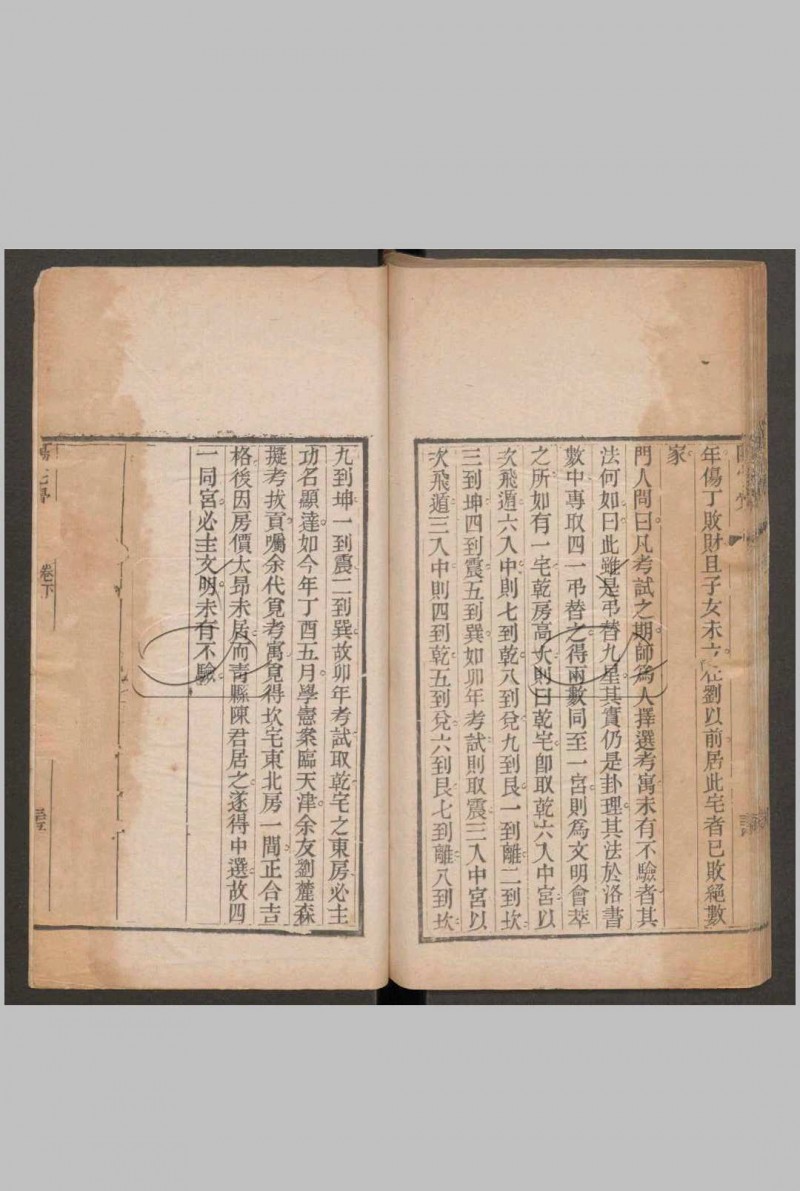 年傷丁敗財且子女未立在劉以前居此宅者已敗絕數
家
門人問曰凡考試之期師爲人擇選考寓未有不驗者其
法何如曰此雖是弔替九星其實仍是卦理其法於洛書
數中專取四一弔替之得兩數同至一宮則爲文明會萃
之所如有一宅乾房高大則曰乾宅卽取乾六入中宮以
次飛遁六入中則七到乾八到兌九到艮一到離二到坎
三到坤四到震五到巽如卯年考試則取震三入中宮以
次飛遁三入中則四到乾五到兌六到艮七到離八到坎
九到坤一到震二到巽故卯年考試取乾宅之東房必主
功名顯達如今年丁酉五月學憲案臨天津余友劉麓森
擬考拔貢囑余代覓考寓覓得坎宅東北房一間正合吉
格後因房價太昂未居而青縣陳君居之遂得中選故四
一同宮必主文明未有不驗
卷下